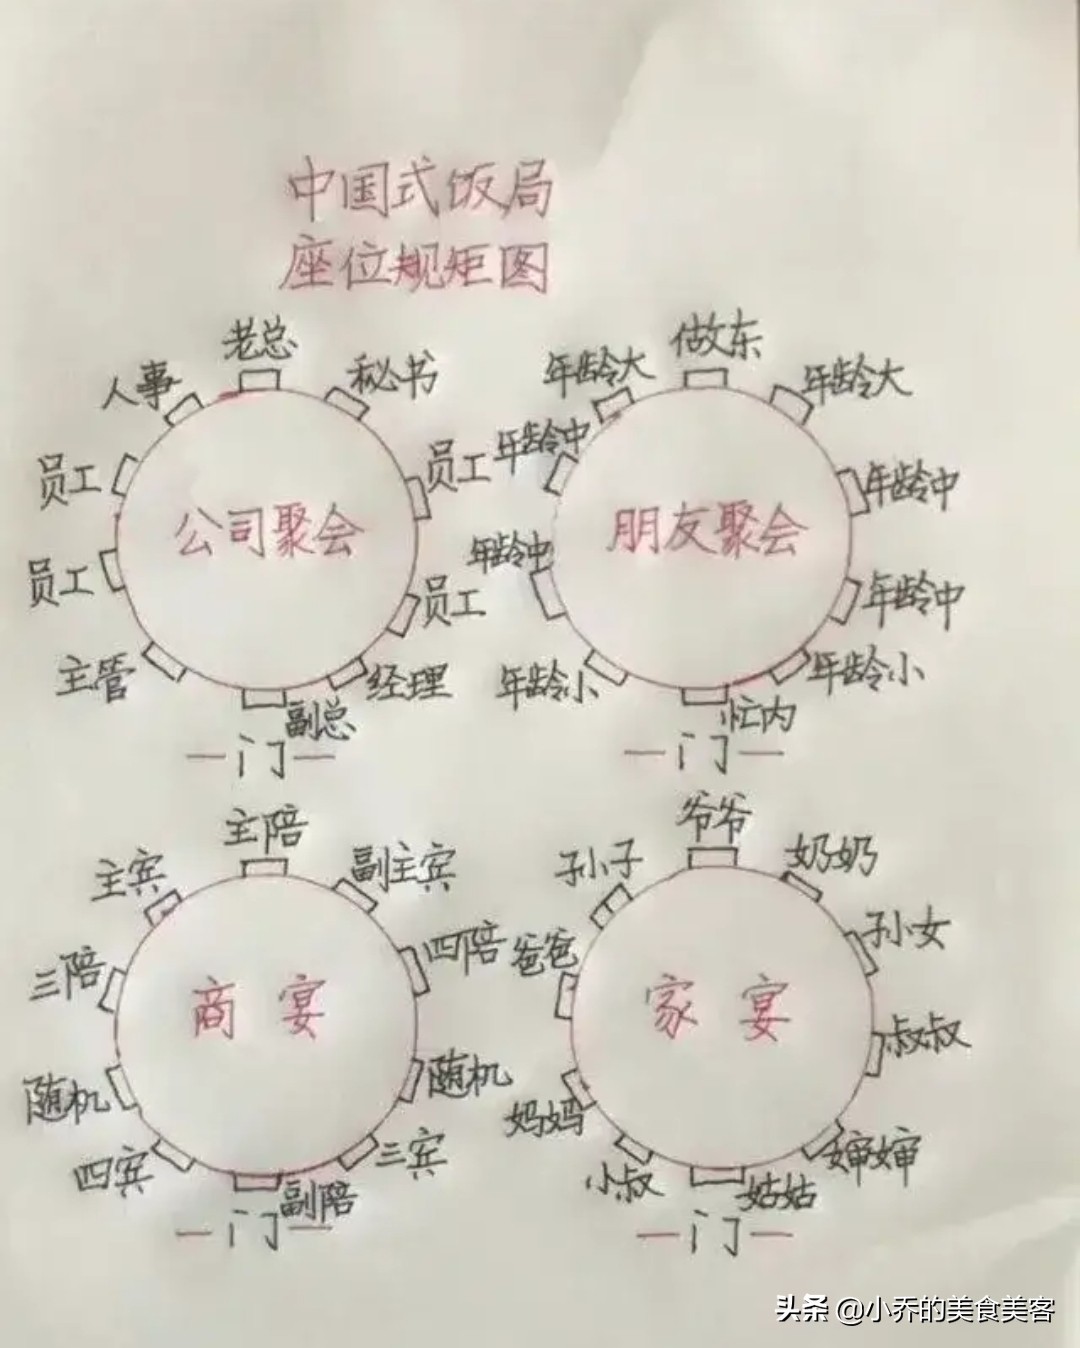 中国式饭局
座位规矩图
老总
人事
秘书
员工
员工
员工
员工
主管
经理
副总
门
公司聚会
做东
年龄大
年龄大
年龄中
年龄中
年龄中
年龄中
年龄小
年龄小
忙内
门
朋友聚会
主陪
主宾
副主宾
三陪
四陪
随机
随机
四宾
三宾
副陪
门
商宴
爷爷
孙子
奶奶
爸爸
孙女
叔叔
妈妈
婶婶
小叔
姑姑
门
家宴
头条 @小乔的美食美客